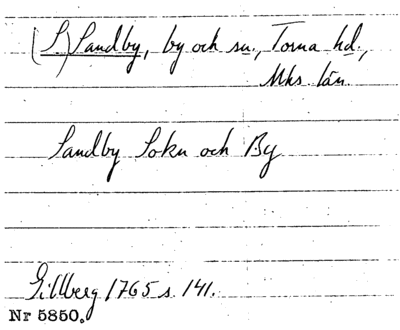 (S) Sandby, by och sn., Torna hd.,
Mks. län
Sandby Sokn och By
Gillberg 1765 s. 141.
Nr 5850.